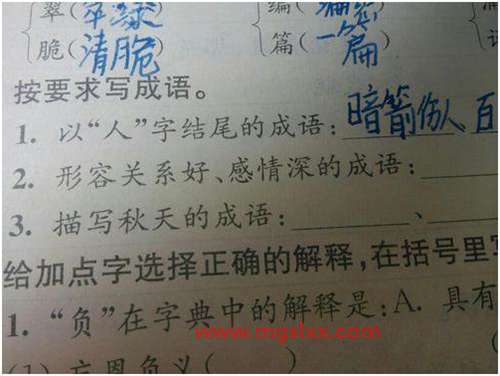 翠(翠绿) 编(
脆(清脆) 篇(一篇)
按要求写成语。
1. 以“人”字结尾的成语:暗箭伤人、百
2. 形容关系好、感情深的成语:
3. 描写秋天的成语: 、
给加点字选择正确的解释,在括号里写
1. “负”在字典中的解释是:A. 具有
www.mgslxx.com
(1) 忘恩负义( )